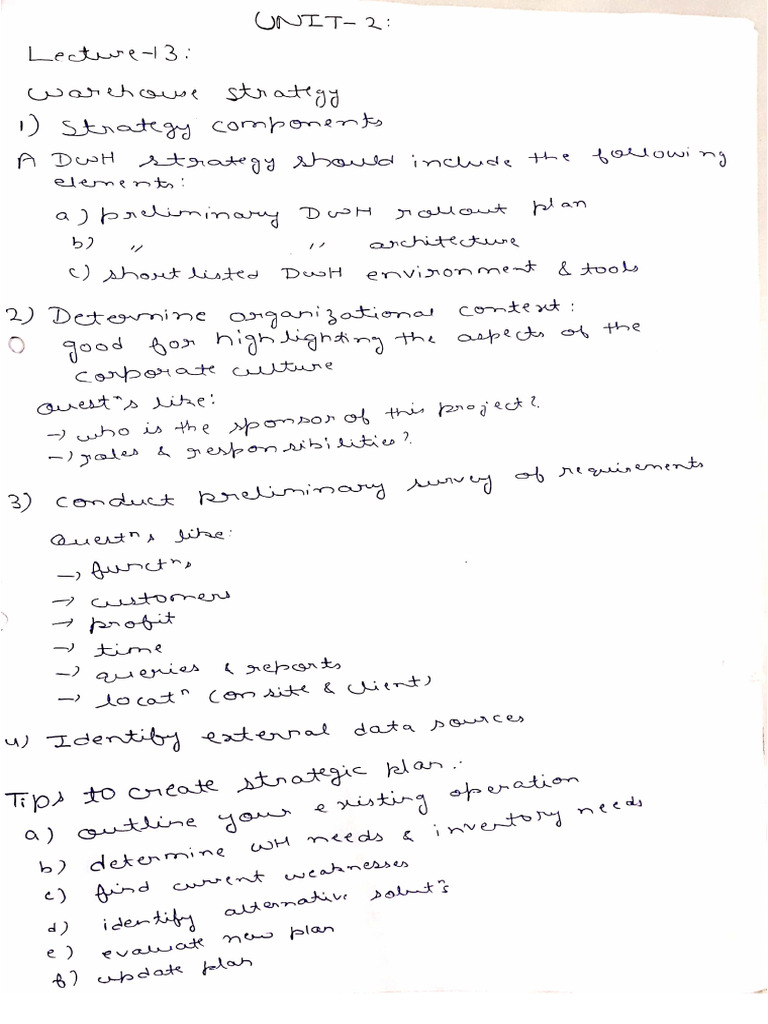 UNIT-2:
Lecture-13:
Warehouse strategy
1) Strategy components
A DWH strategy should include the following
elements:
a) preliminary DWH rollout plan
b) " " architecture
c) shortlisted DWH environment & tools
2) Determine organizational context:
good for highlighting the aspects of the
corporate culture
Questⁿs like:
→ who is the sponsor of this project?
→ roles & responsibilities?
3) conduct preliminary survey of requirements
Questⁿs like:
→ functⁿs
→ customers
→ profit
→ time
→ queries & reports
→ locatⁿ (onsite & client)
4) Identify external data sources
Tips to create strategic plan:
a) outline your existing operation
b) determine WH needs & inventory needs
c) find current weaknesses
d) identify alternative solutⁿs
e) evaluate new plan
f) update plan